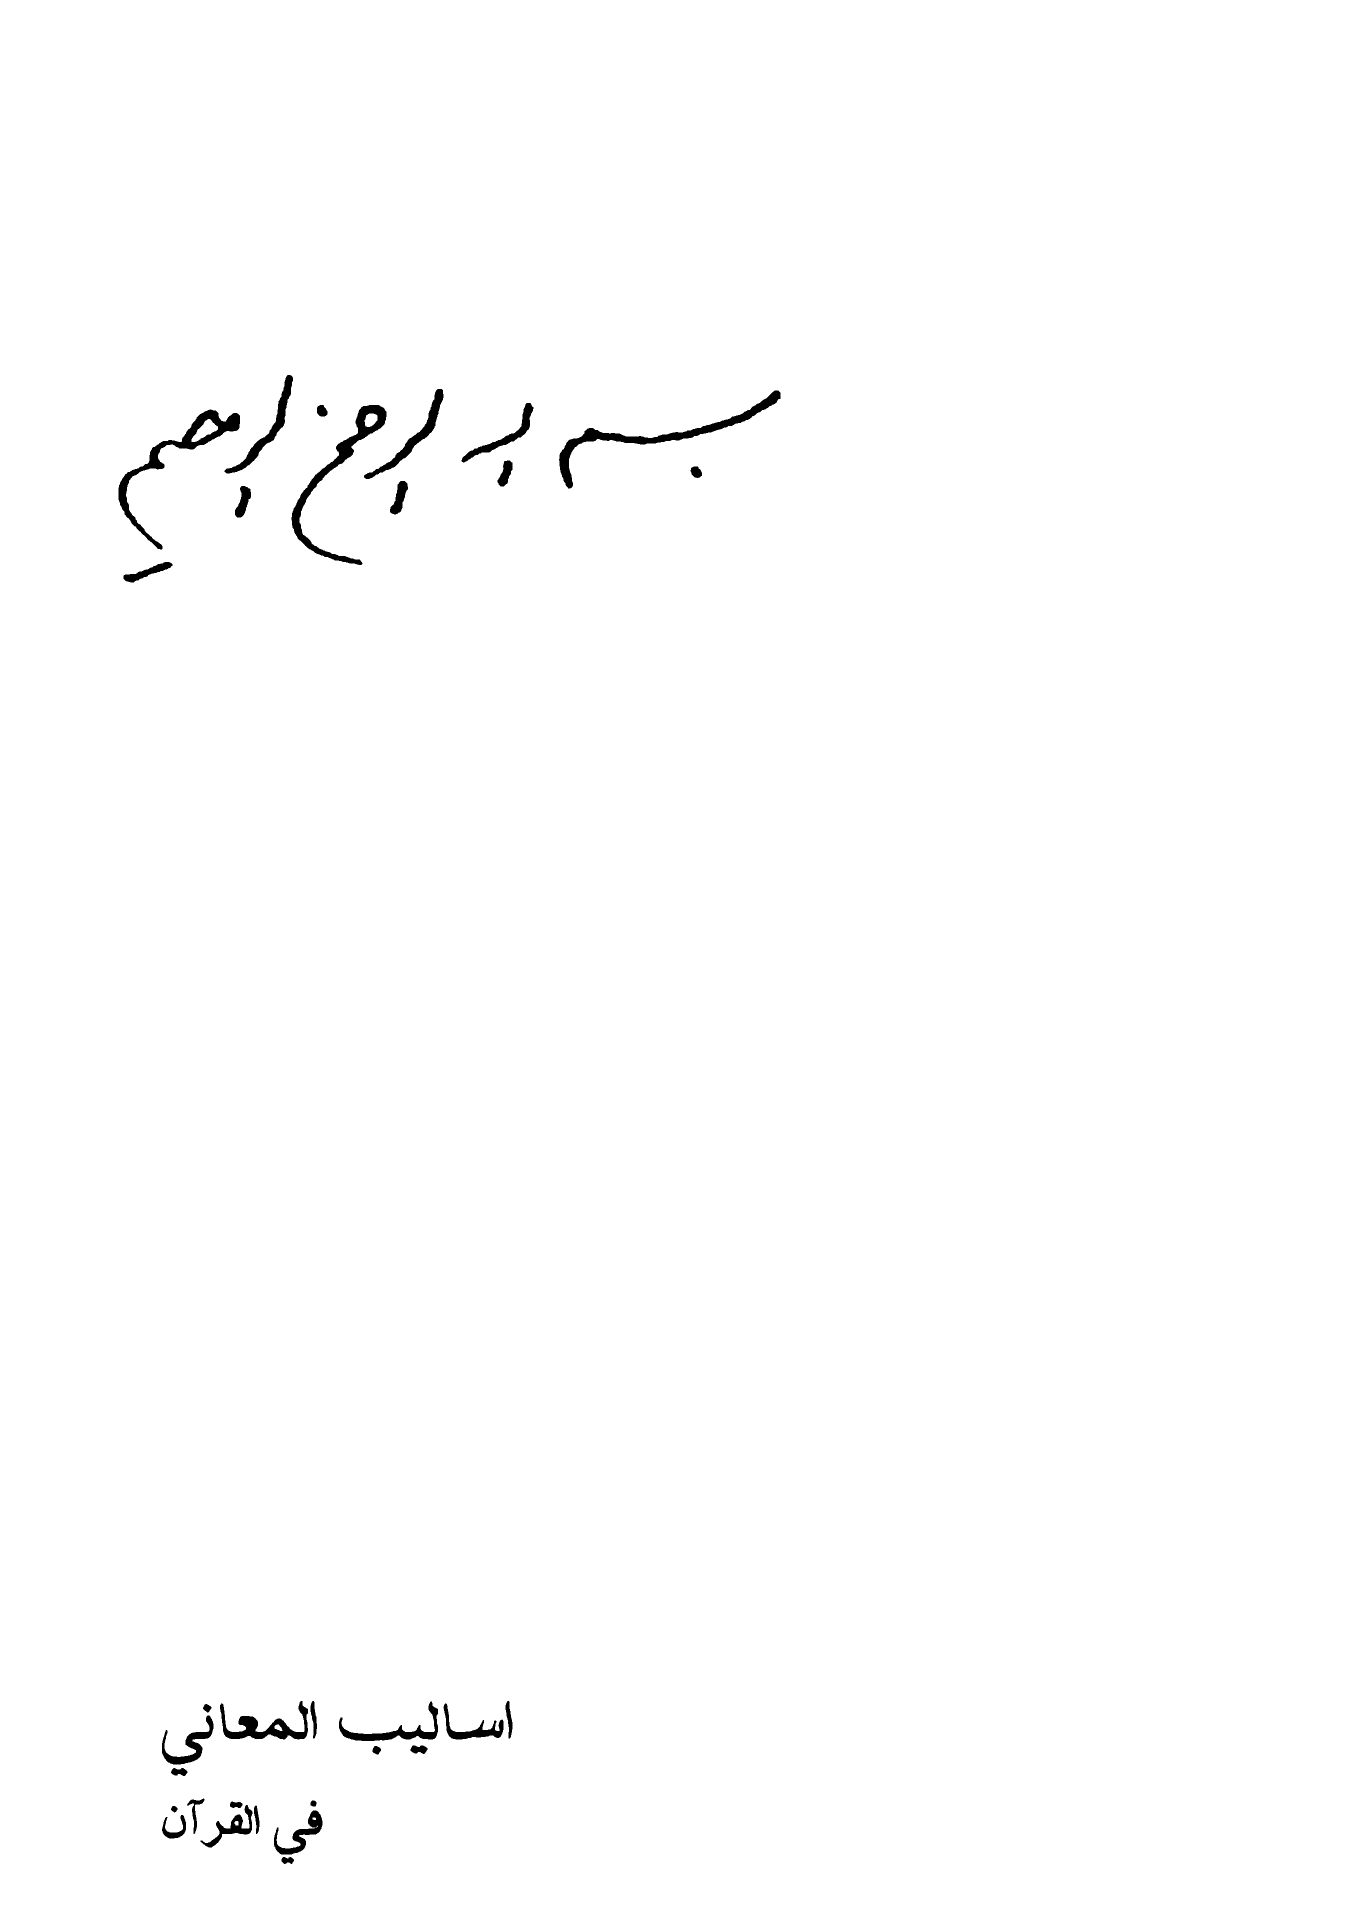 بسم الله الرحمن الرحيم
اساليب المعاني
في القرآن